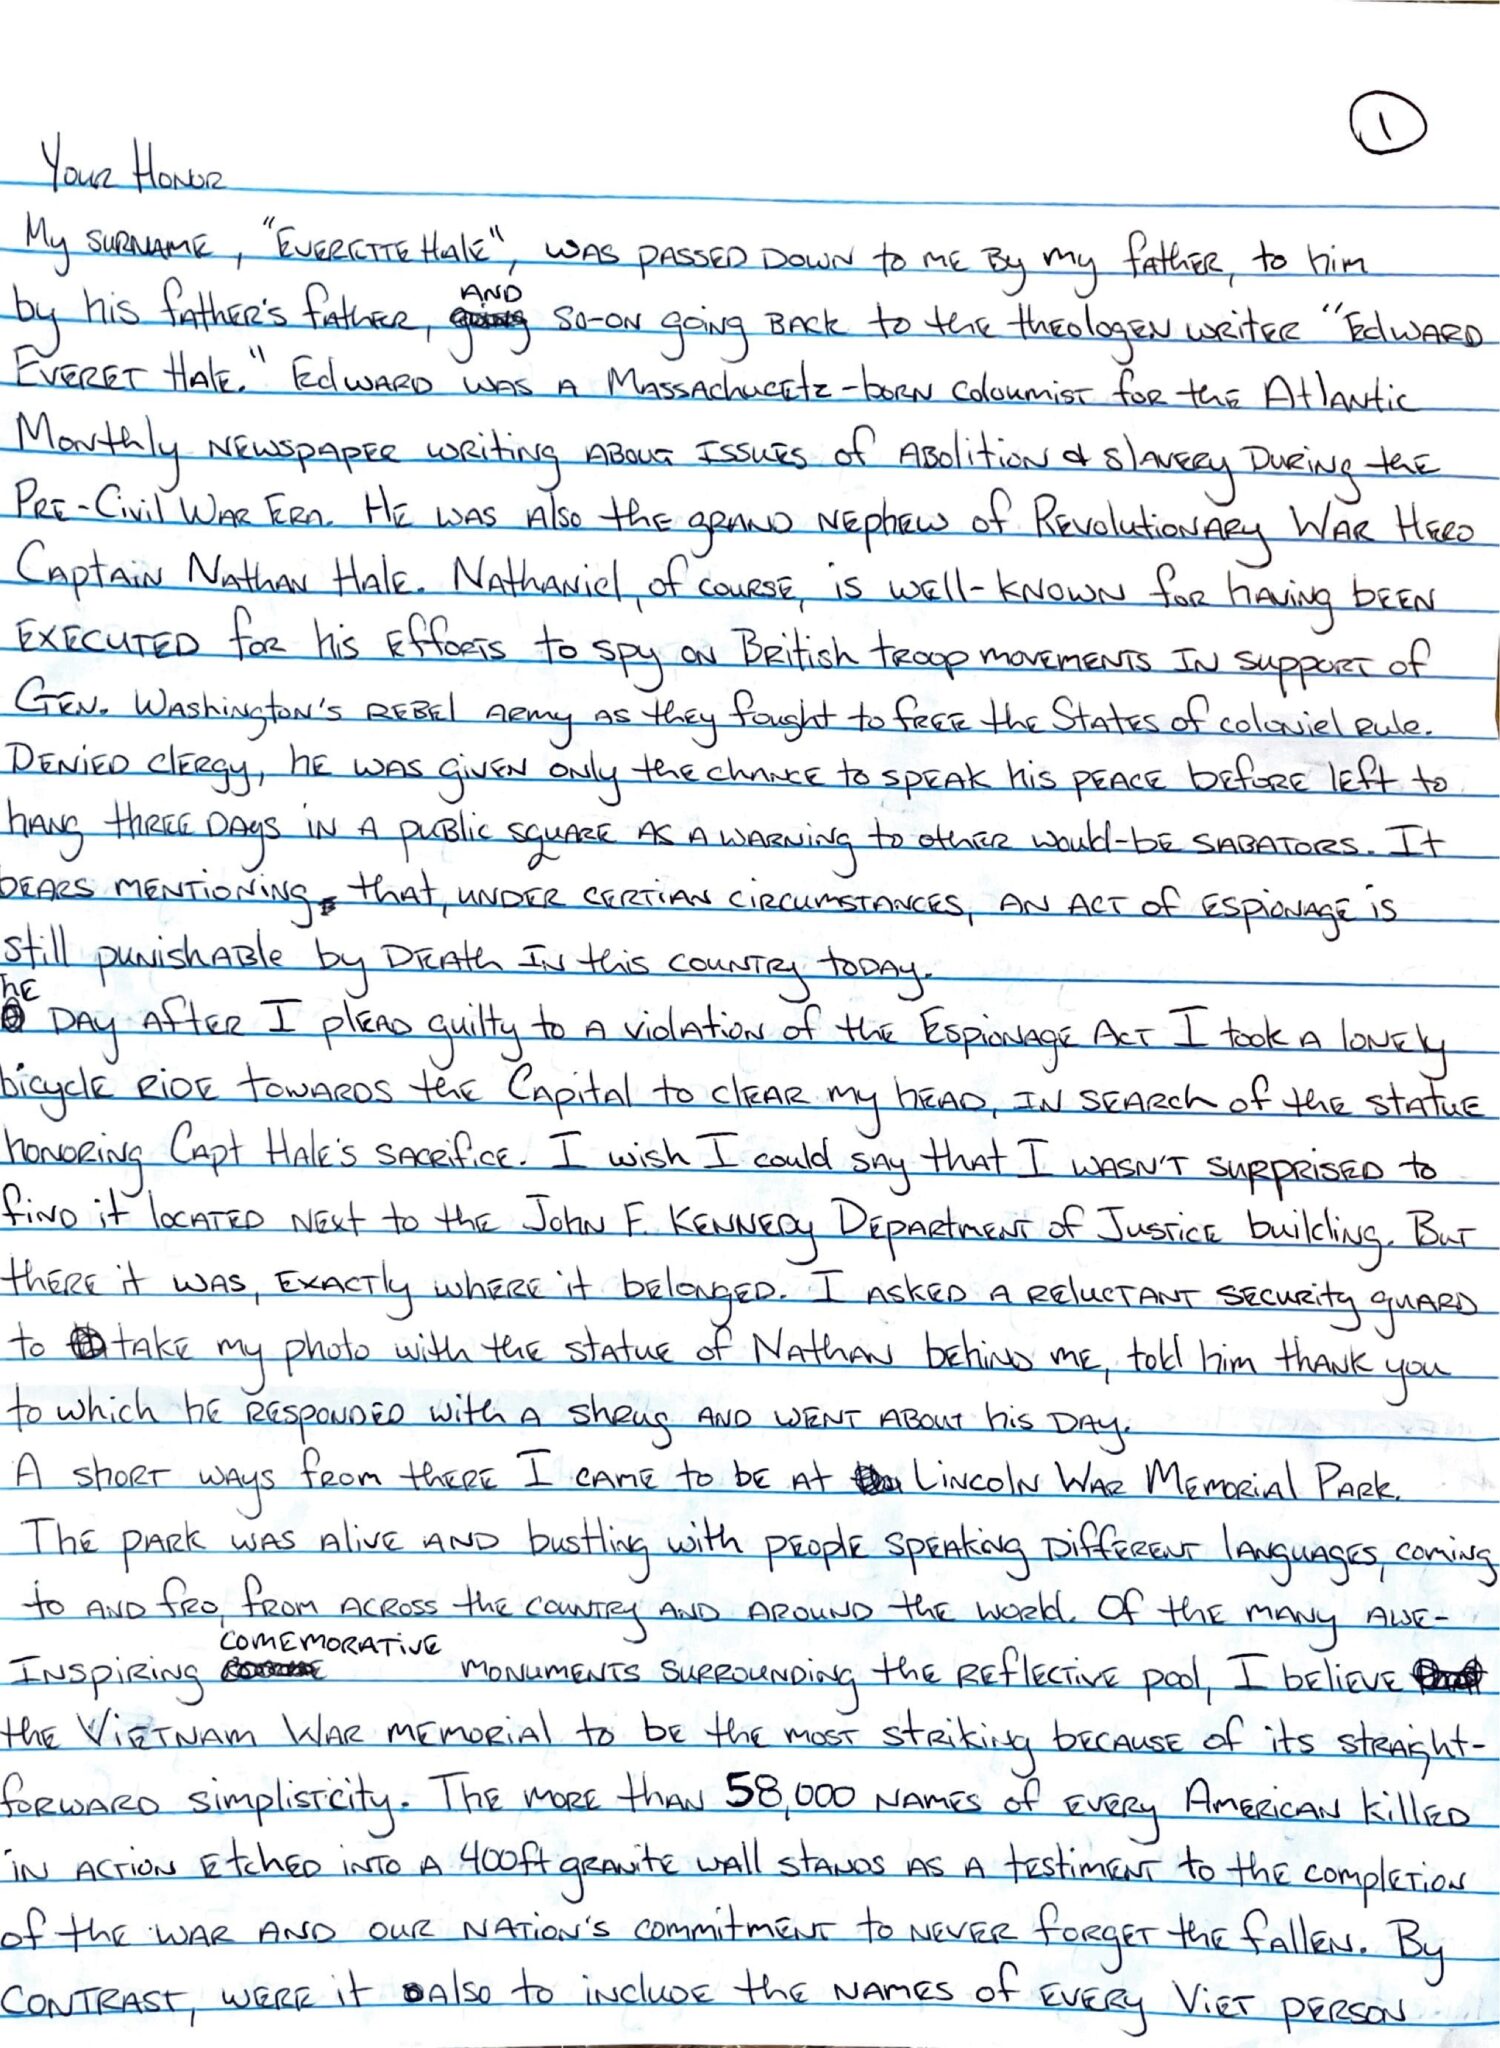 1
Your Honor
My surname, "Everette Hale", was passed down to me by my father, to him
by his father's father, and so-on going back to the theologen writer "Edward
Everet Hale." Edward was a Massachucetz-born coloumist for the Atlantic
Monthly newspaper writing about issues of abolition & slavery during the
Pre-Civil War Era. He was also the grand nephew of Revolutionary War Hero
Captain Nathan Hale. Nathaniel, of course, is well-known for having been
executed for his efforts to spy on British troop movements in support of
Gen. Washington's rebel army as they fought to free the States of coloniel rule.
Denied clergy, he was given only the chance to speak his peace before left to
hang three days in a public square as a warning to other would-be sabators. It
bears mentioning that, under certian circumstances, an act of espionage is
still punishable by death in this country today.
he
Day after I plead guilty to a violation of the Espionage Act I took a lonely
bicycle ride towards the Capital to clear my head, in search of the statue
honoring Capt Hale's sacrifice. I wish I could say that I wasn't surprised to
find it located next to the John F. Kennedy Department of Justice building. But
there it was, exactly where it belonged. I asked a reluctant security guard
to take my photo with the statue of Nathan behind me, told him thank you
to which he responded with a shrug and went about his day.
A short ways from there I came to be at Lincoln War Memorial Park.
The park was alive and bustling with people speaking different languages, coming
to and fro, from across the country and around the world. Of the many awe-
inspiring comemorative monuments surrounding the reflective pool, I believe
the Vietnam War memorial to be the most striking because of its straight-
forward simplisticity. The more than 58,000 names of every American killed
in action etched into a 400ft granite wall stands as a testiment to the completion
of the war and our nation's commitment to never forget the fallen. By
contrast, were it also to include the names of every Viet person